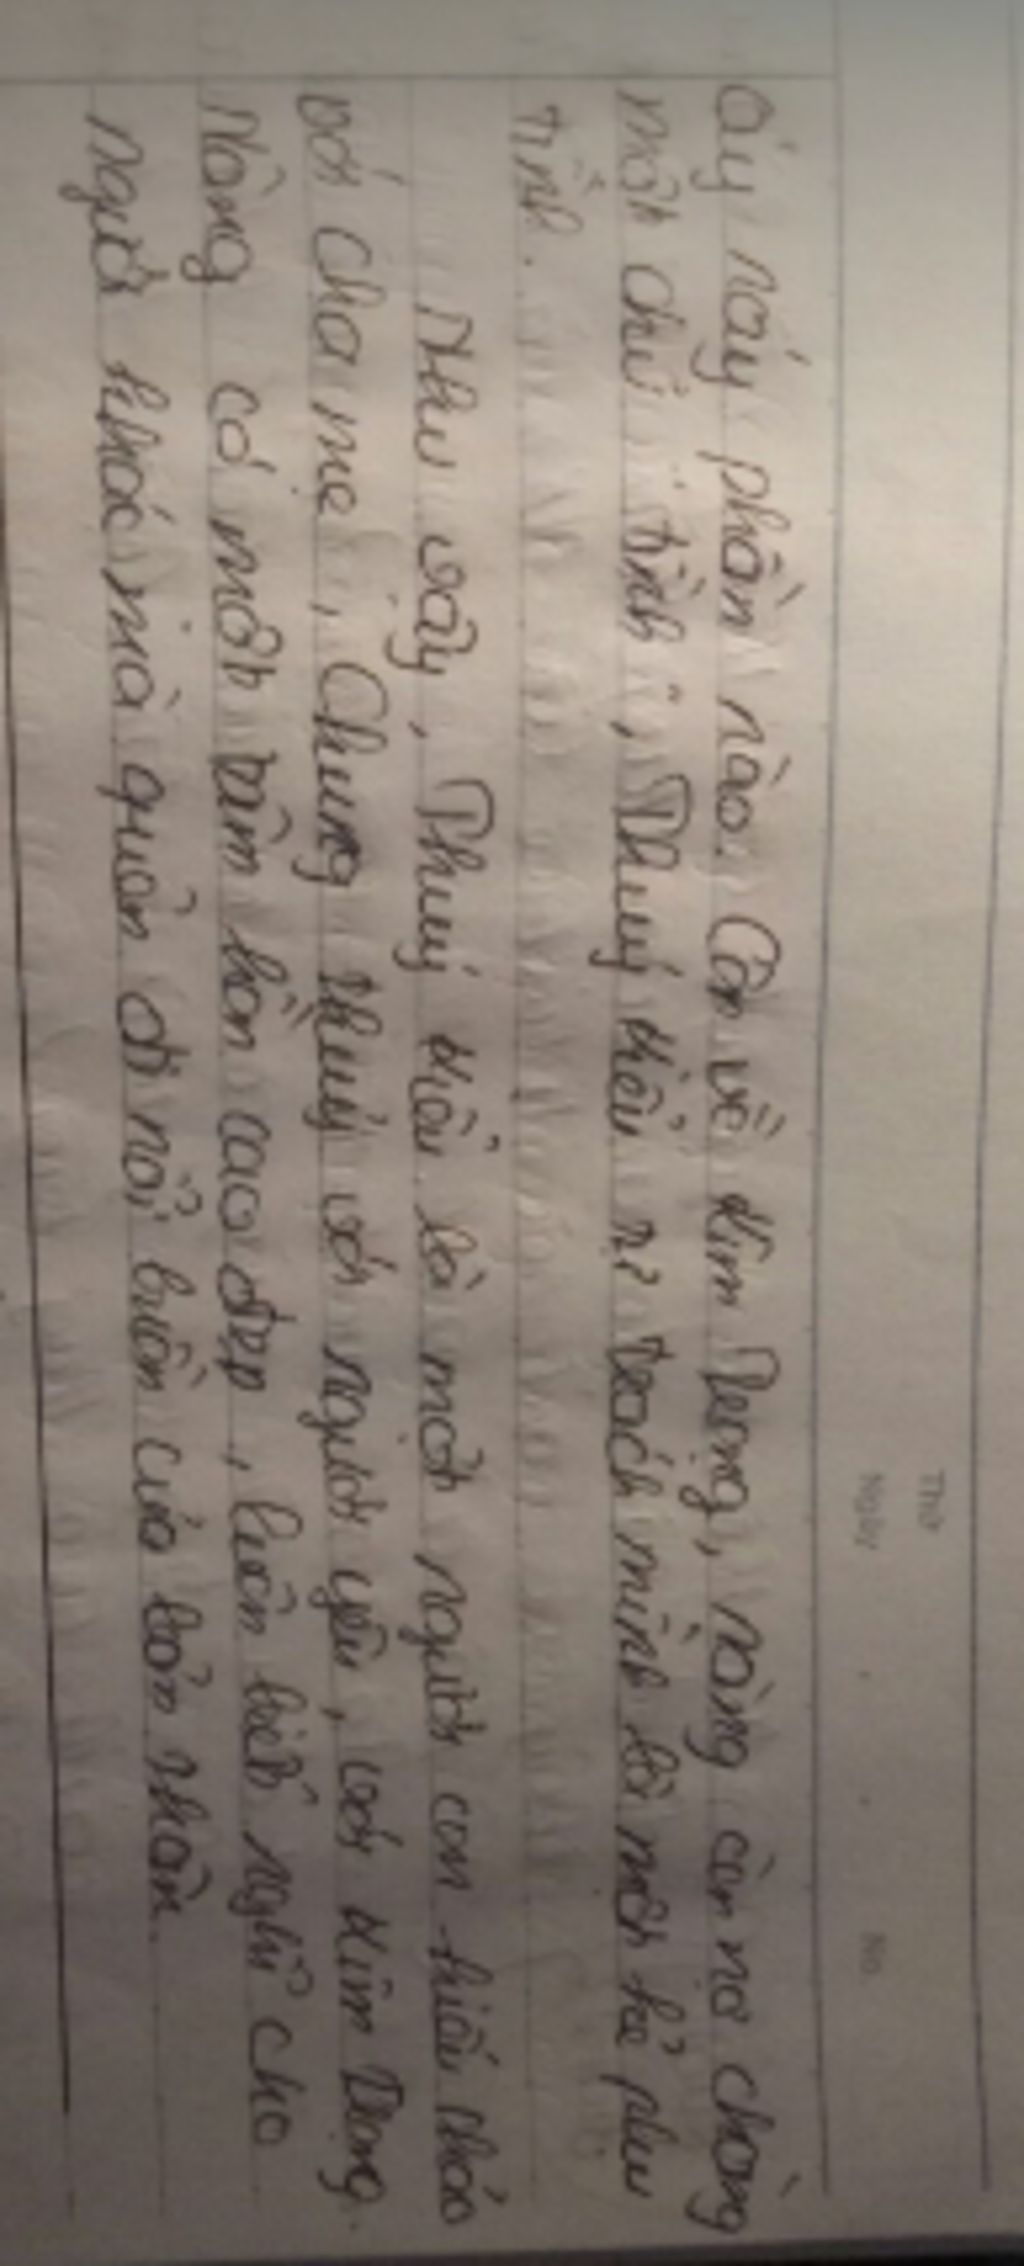 Thứ
Ngày
No.
áy náy phần nào. Còn về Kim Trọng, nàng còn nợ chàng
một chữ "tình", Thuý Kiều tự trách mình là một kẻ phụ
tình.
Như vậy, Thuý Kiều là một người con hiếu thảo
với cha mẹ, Chung thuỷ với người yêu, với Kim Trọng.
Nàng có một tâm hồn cao đẹp, luôn biết nghĩ cho
người khác mà quên đi nỗi buồn của bản thân.